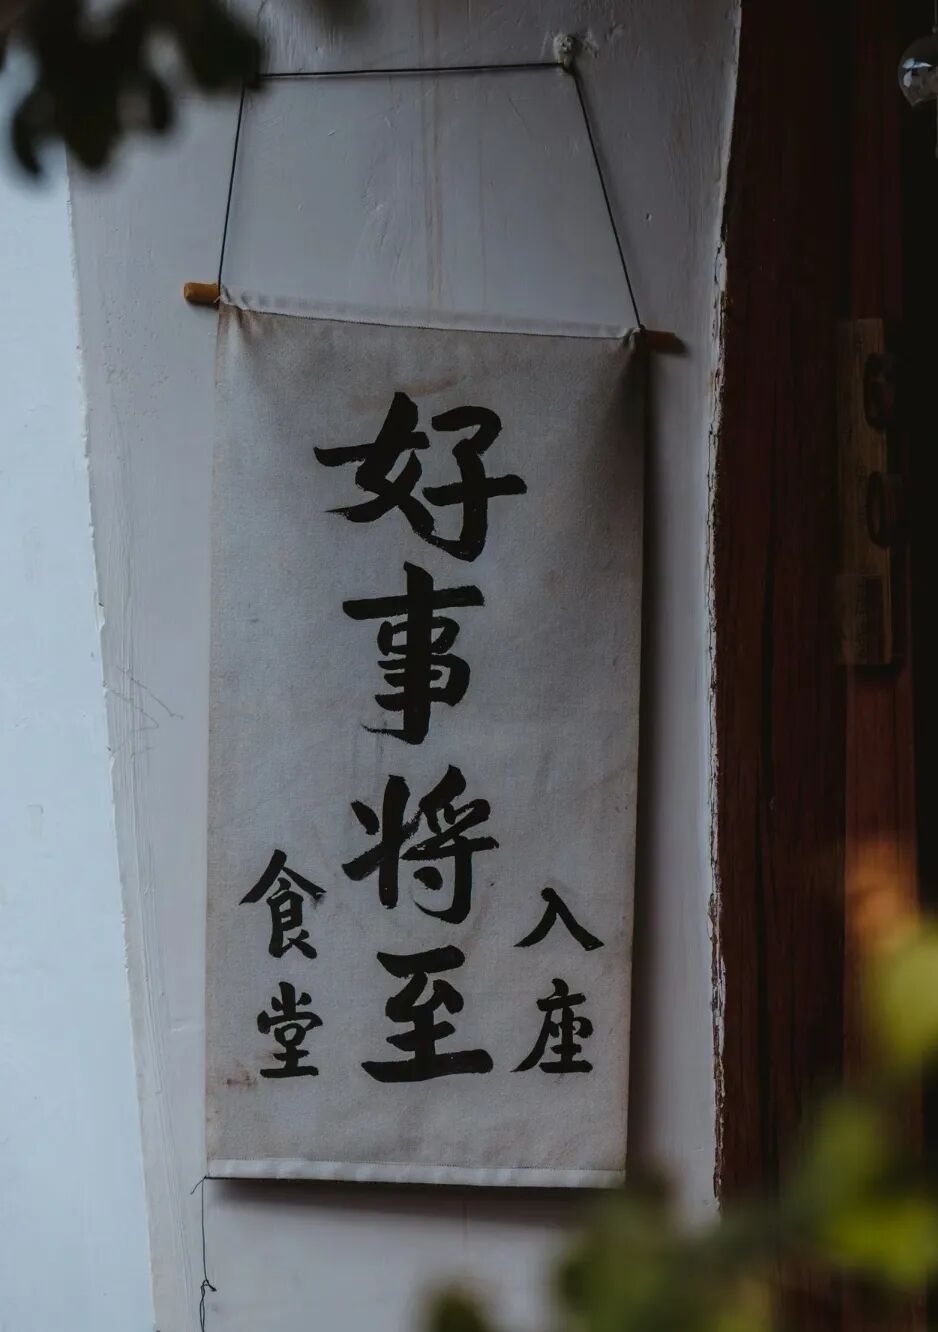 入座
好事将至
食堂